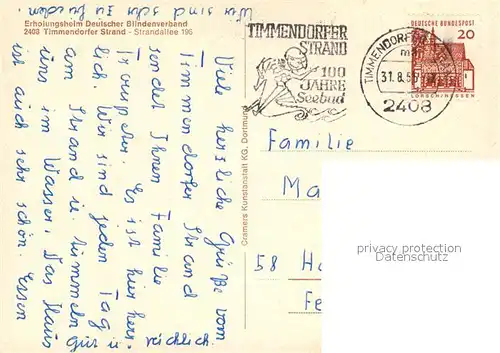 Wir sind sehr zu frieden
Erholungsheim Deutscher Blindenverband
2408 Timmendorfer Strand - Strandallee 196
Viele herzliche Grüße vom
Timmendorfer Strand
sendet Ihnen Familie
Es ist hier herr
lich. Wir sind jeden Tag
am Strand u. tummeln
uns im Wasser. Das Haus
ist auch sehr schön. Essen
gut u. reichlich.
Cramers Kunstanstalt KG, Dortmund
TIMMENDORFER
STRAND
100
JAHRE
Seebad
TIMMENDORFER
31.8.
2408
DEUTSCHE BUNDESPOST
20
LORSCH/HESSEN
Familie
Ma
58 Ha
Fe
privacy protection
Datenschutz